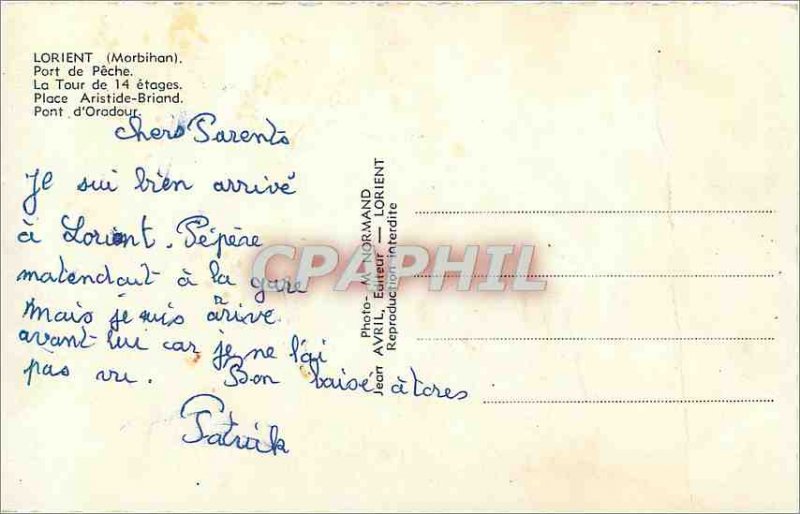 LORIENT (Morbihan).
Port de Pêche.
La Tour de 14 étages.
Place Aristide-Briand.
Pont d'Oradour.
chers Parents
Je sui bien arrivé
à Lorient. Pépère
matendait à la gare
Mais je suis àrive
avant lui car je ne l'ai
pas vu. Bon baisé à tores
Patrick
Photo - M. NORMAND
Jean AVRIL, Editeur — LORIENT
Reproduction interdite
CPAPHIL